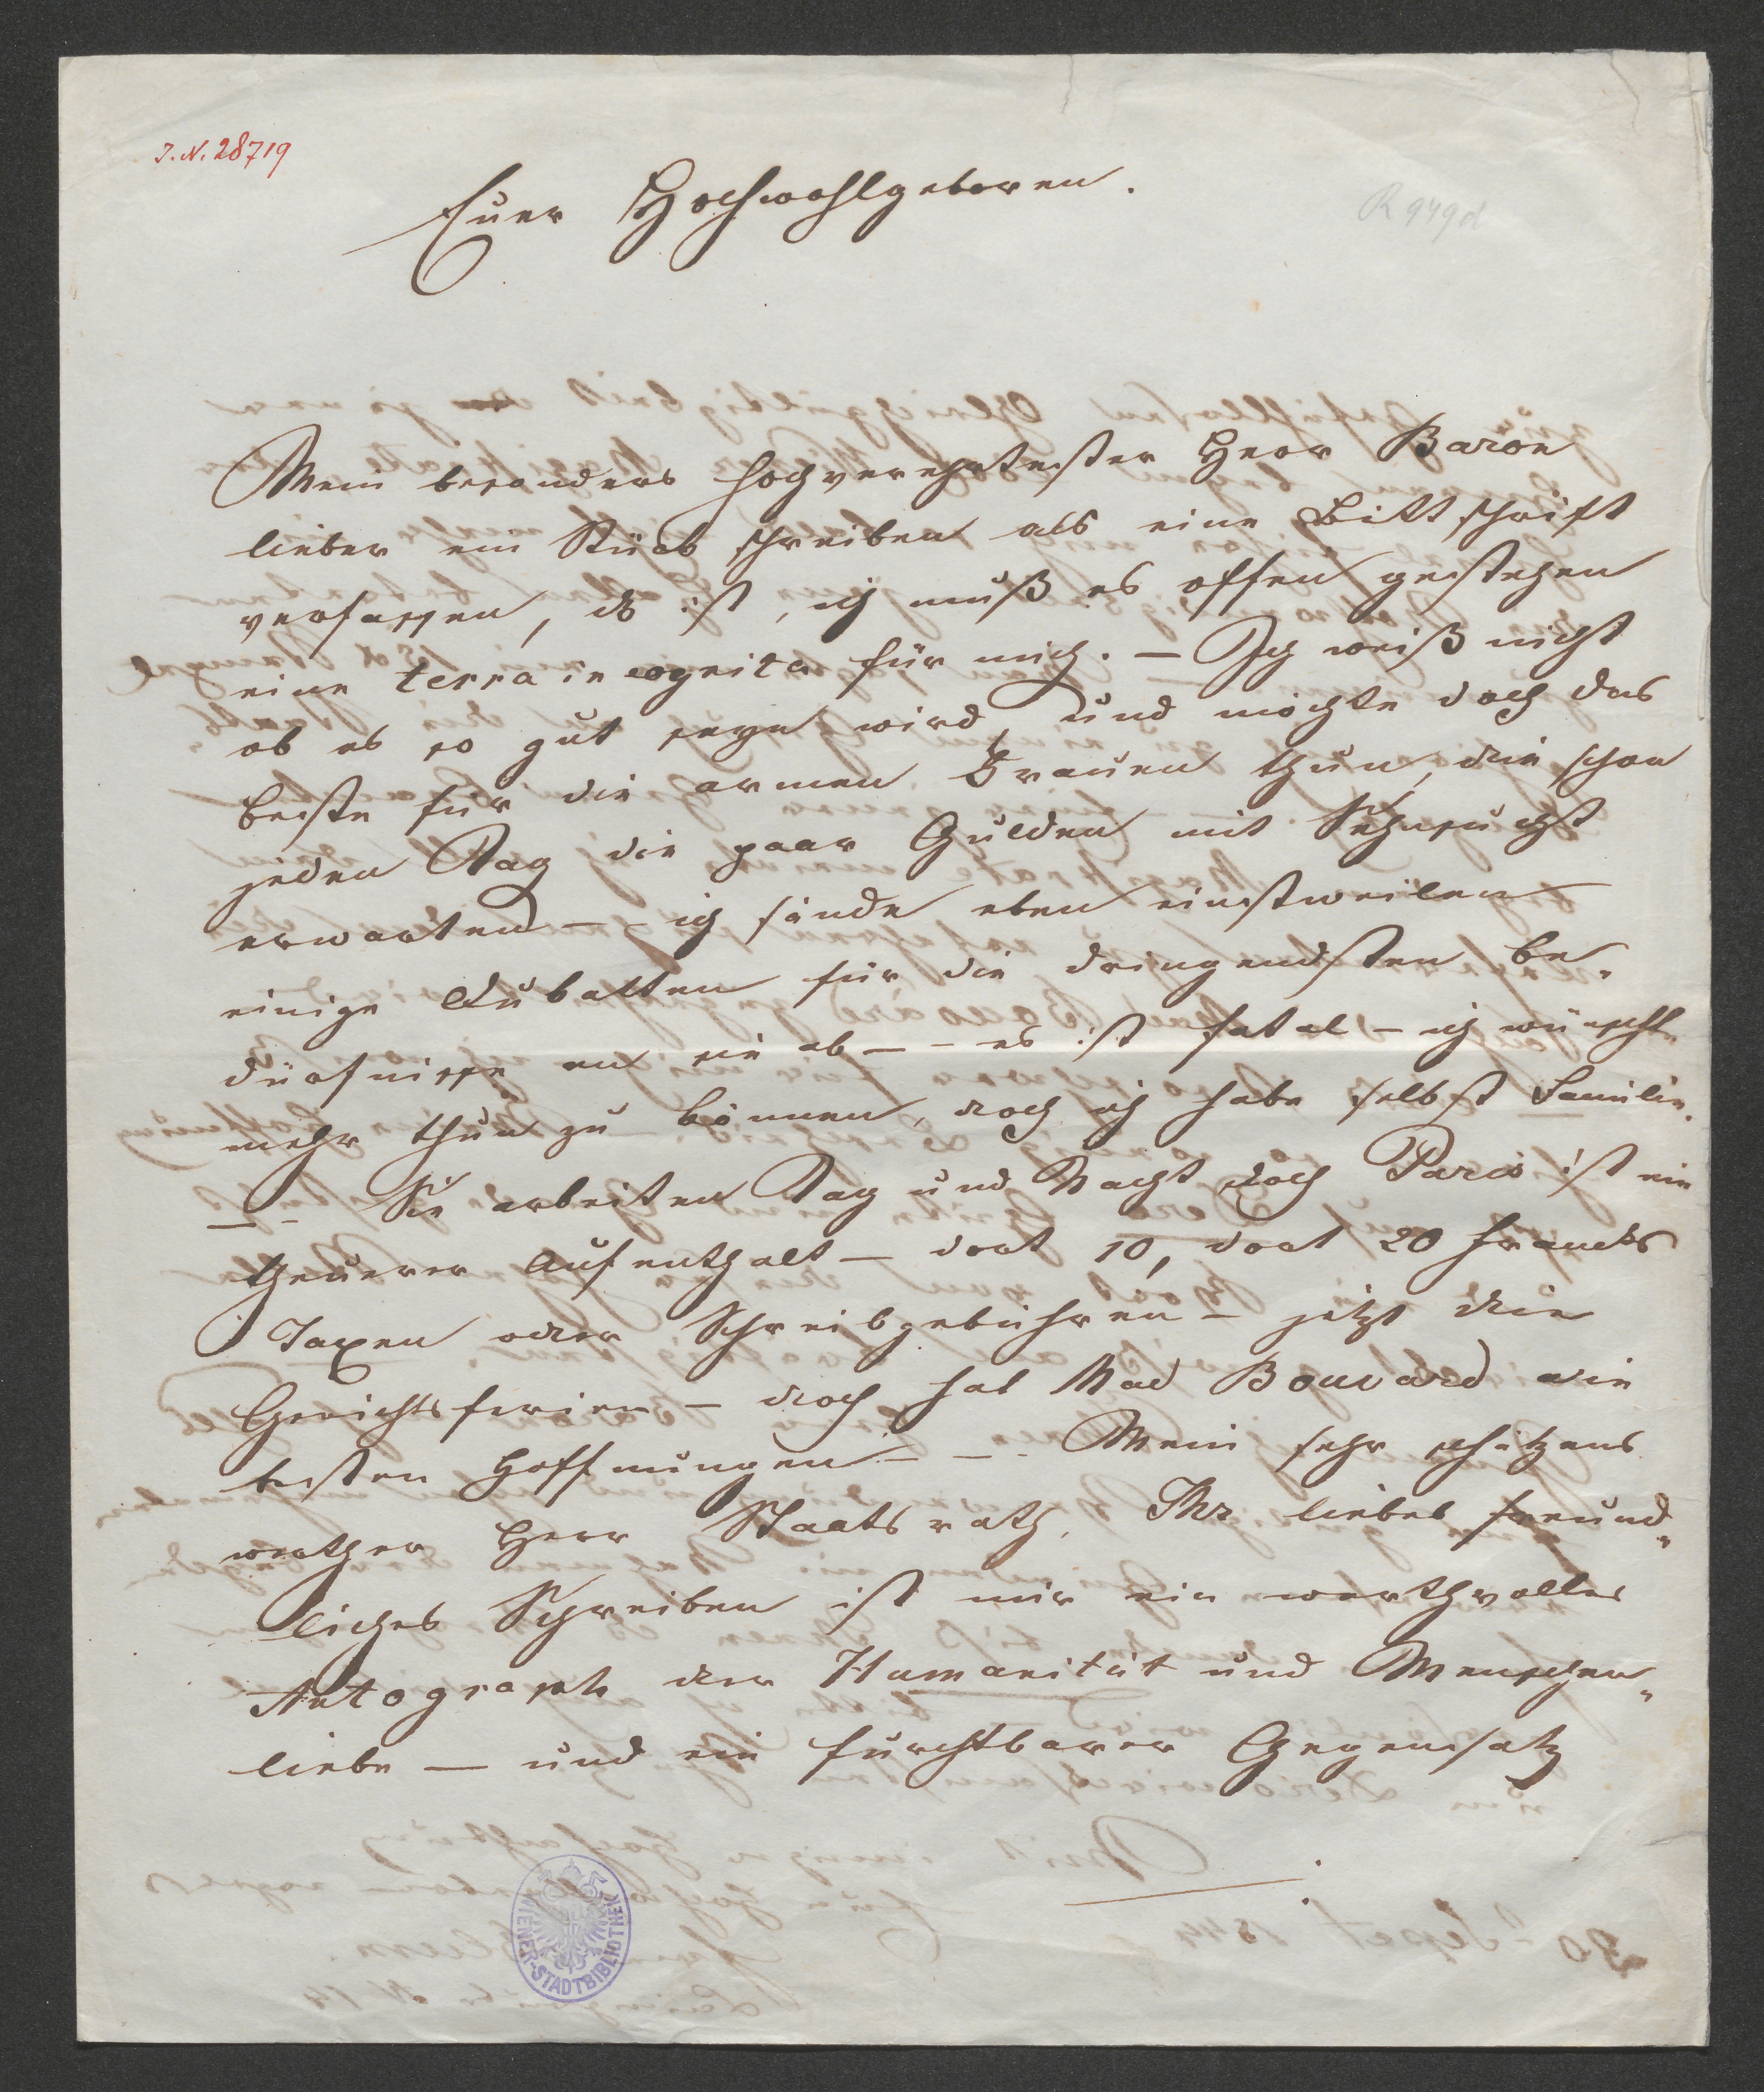 I. N. 28719
R 949d
Euer Hochwohlgeboren.
Mein besonders hochverehrtester Herr Baron
lieber ein Stück schreiben als eine Bittschrift
verfassen, das ist, ich muß es offen gestehen
eine terra incognita für mich. — Ich weiß nicht
ob es so gut seyn wird, und möchte doch das
beste für die armen Frauen thun, die schon
jeden Tag die paar Gulden mit Sehnsucht
erwarten — - ich sende eben einstweilen
einige Dukatten für die dringendsten Be-
dürfnisse an sie ab — - es ist fatal - ich wünschte
mehr thun zu können, doch ich habe selbst Familie.
— - Sie arbeiten Tag und Nacht doch Paris ist ein
theuerer Aufenthalt — dort 10, dort 20 Francks
Taxen oder Schreibgebühren - jetzt die
Gerichtsferien — doch hat Mad Bouvard die
besten Hoffnungen - — . Mein sehr schätzens
werther Herr Staatsrath. Ihr liebes freund-
liches Schreiben ist mir ein werthvolles
Autograph der Humanität und Menschen-
liebe — und ein furchtbarer Gegensatz
WIENER-STADTBIBLIOTHEK